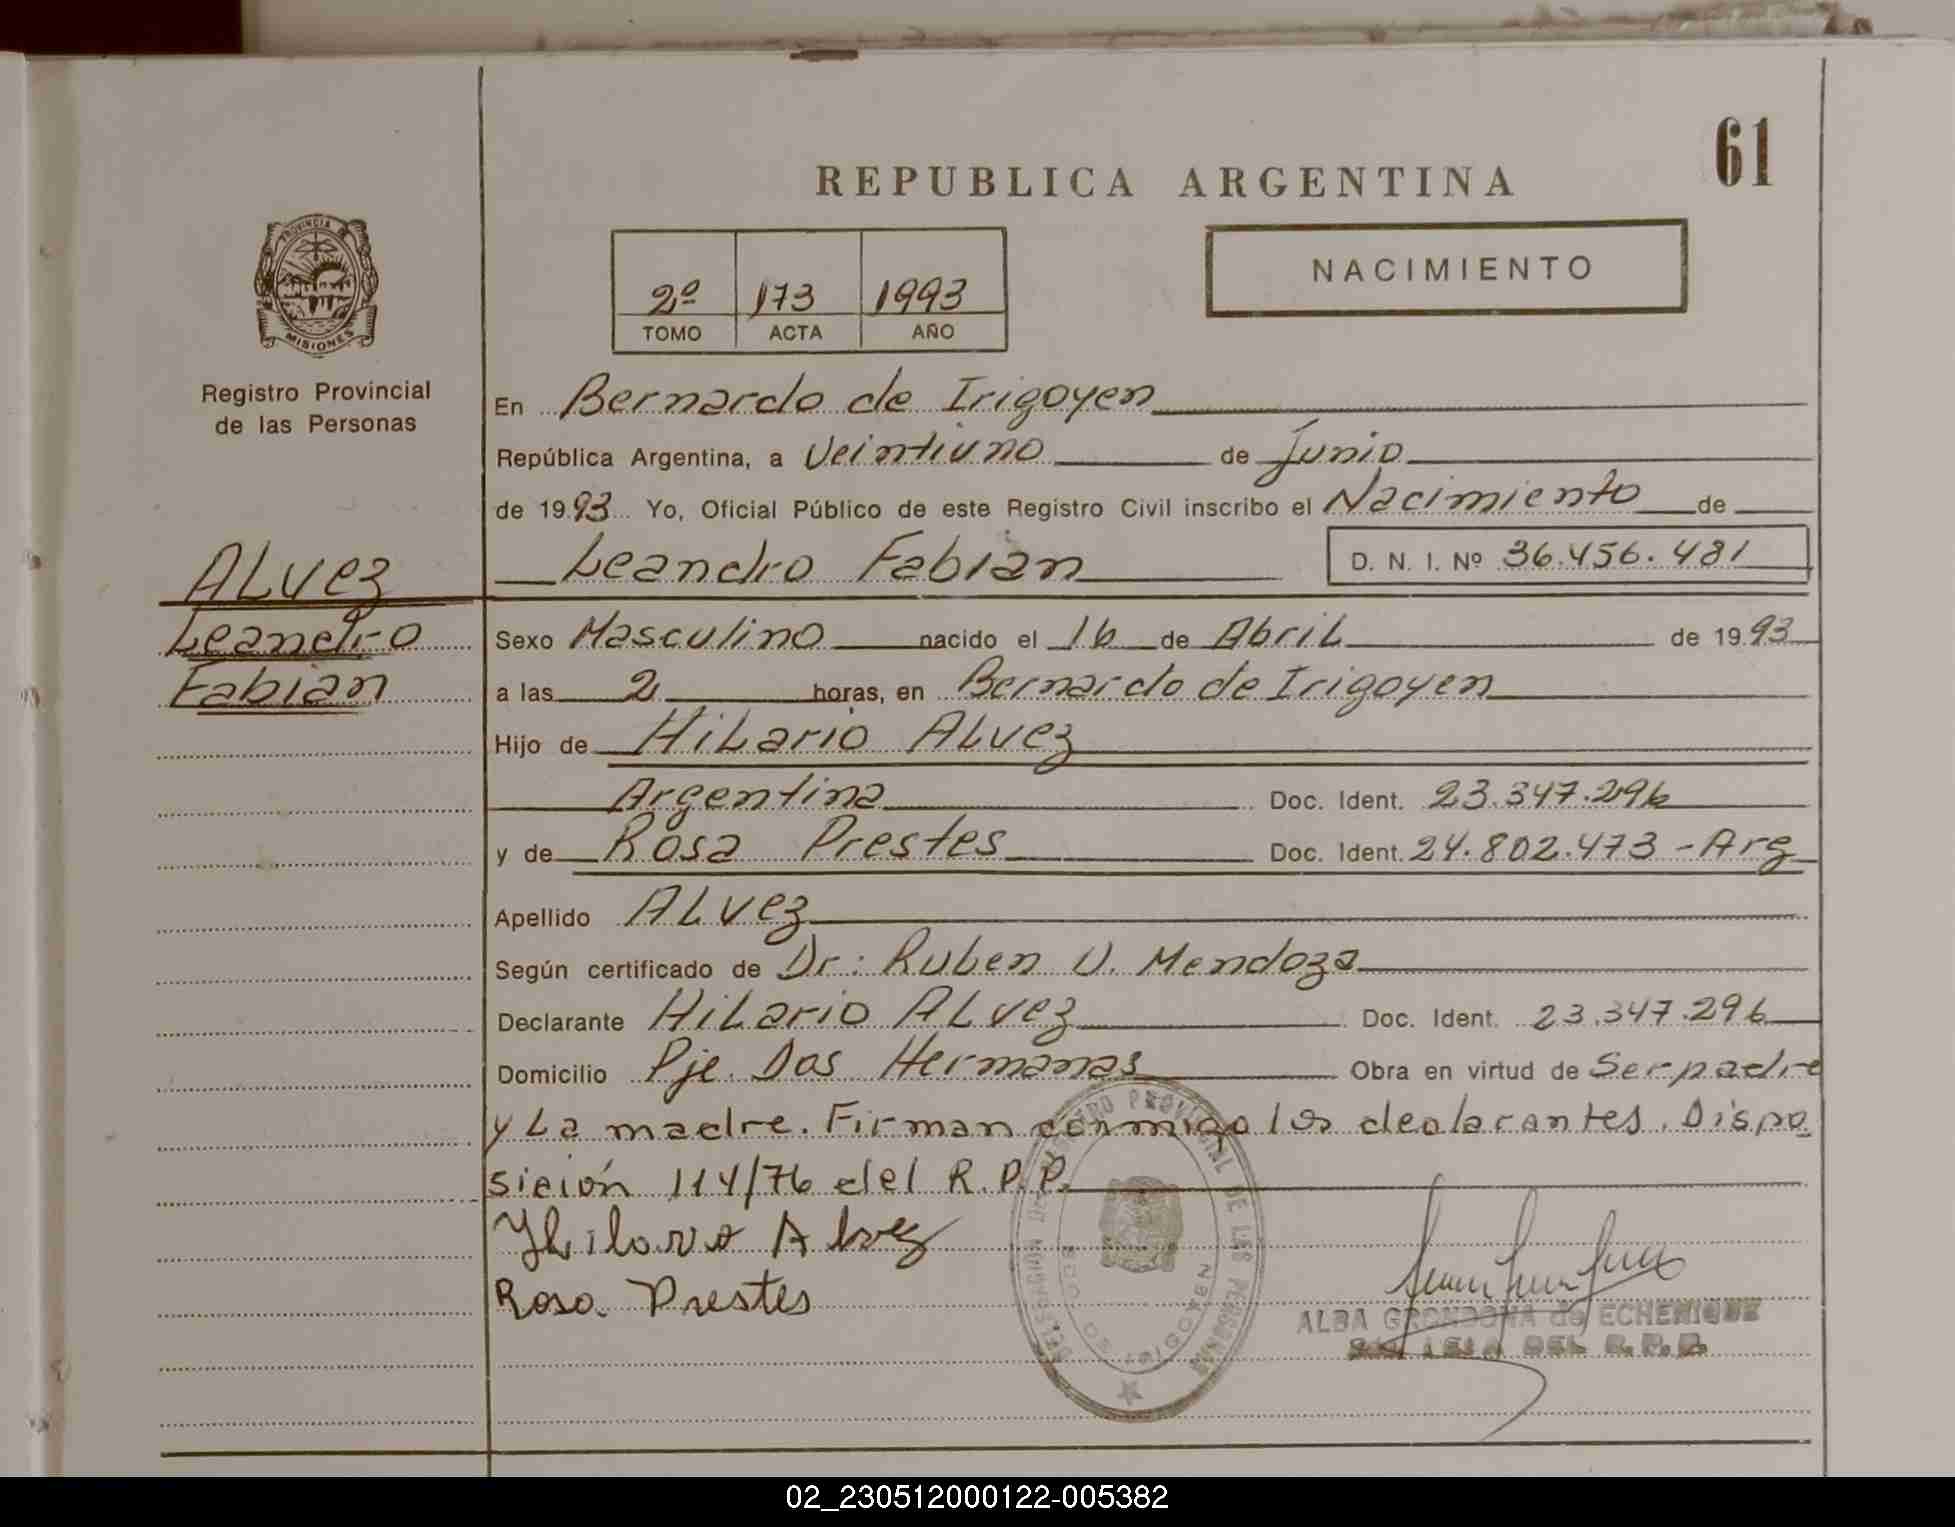 61
REPUBLICA ARGENTINA
PROVINCIA DE
MISIONES
Registro Provincial
de las Personas
2º 173 1993
TOMO ACTA AÑO
NACIMIENTO
En Bernardo de Irigoyen
República Argentina, a Veintiuno de Junio
de 1993 Yo, Oficial Público de este Registro Civil inscribo el Nacimiento de
ALvez
Leandro Fabian D. N. I. Nº 36.456.481
Leandro
Sexo Masculino nacido el 16 de Abril de 1993
Fabian
a las 2 horas, en Bernardo de Irigoyen
Hijo de HiLario ALvez
Argentina Doc. Ident. 23.347.296
y de Rosa Prestes Doc. Ident. 24.802.473 - Arg
Apellido ALvez
Según certificado de Dr: Ruben U. Mendoza
Declarante HiLario ALvez Doc. Ident. 23.347.296
Domicilio Pje. Dos Hermanas Obra en virtud de Ser padre
y La madre. Firman conmigo los declarantes. Dispo
sición 114/76 del R.P.P.
Hilario Alvez
Rosa Prestes
ALBA GRONDONA de ECHENIQUE
DEL R.P.P.
REGISTRO PROVINCIAL DE LAS PERSONAS
DELEGACION
BDO DE IRIGOYEN
02_230512000122-005382